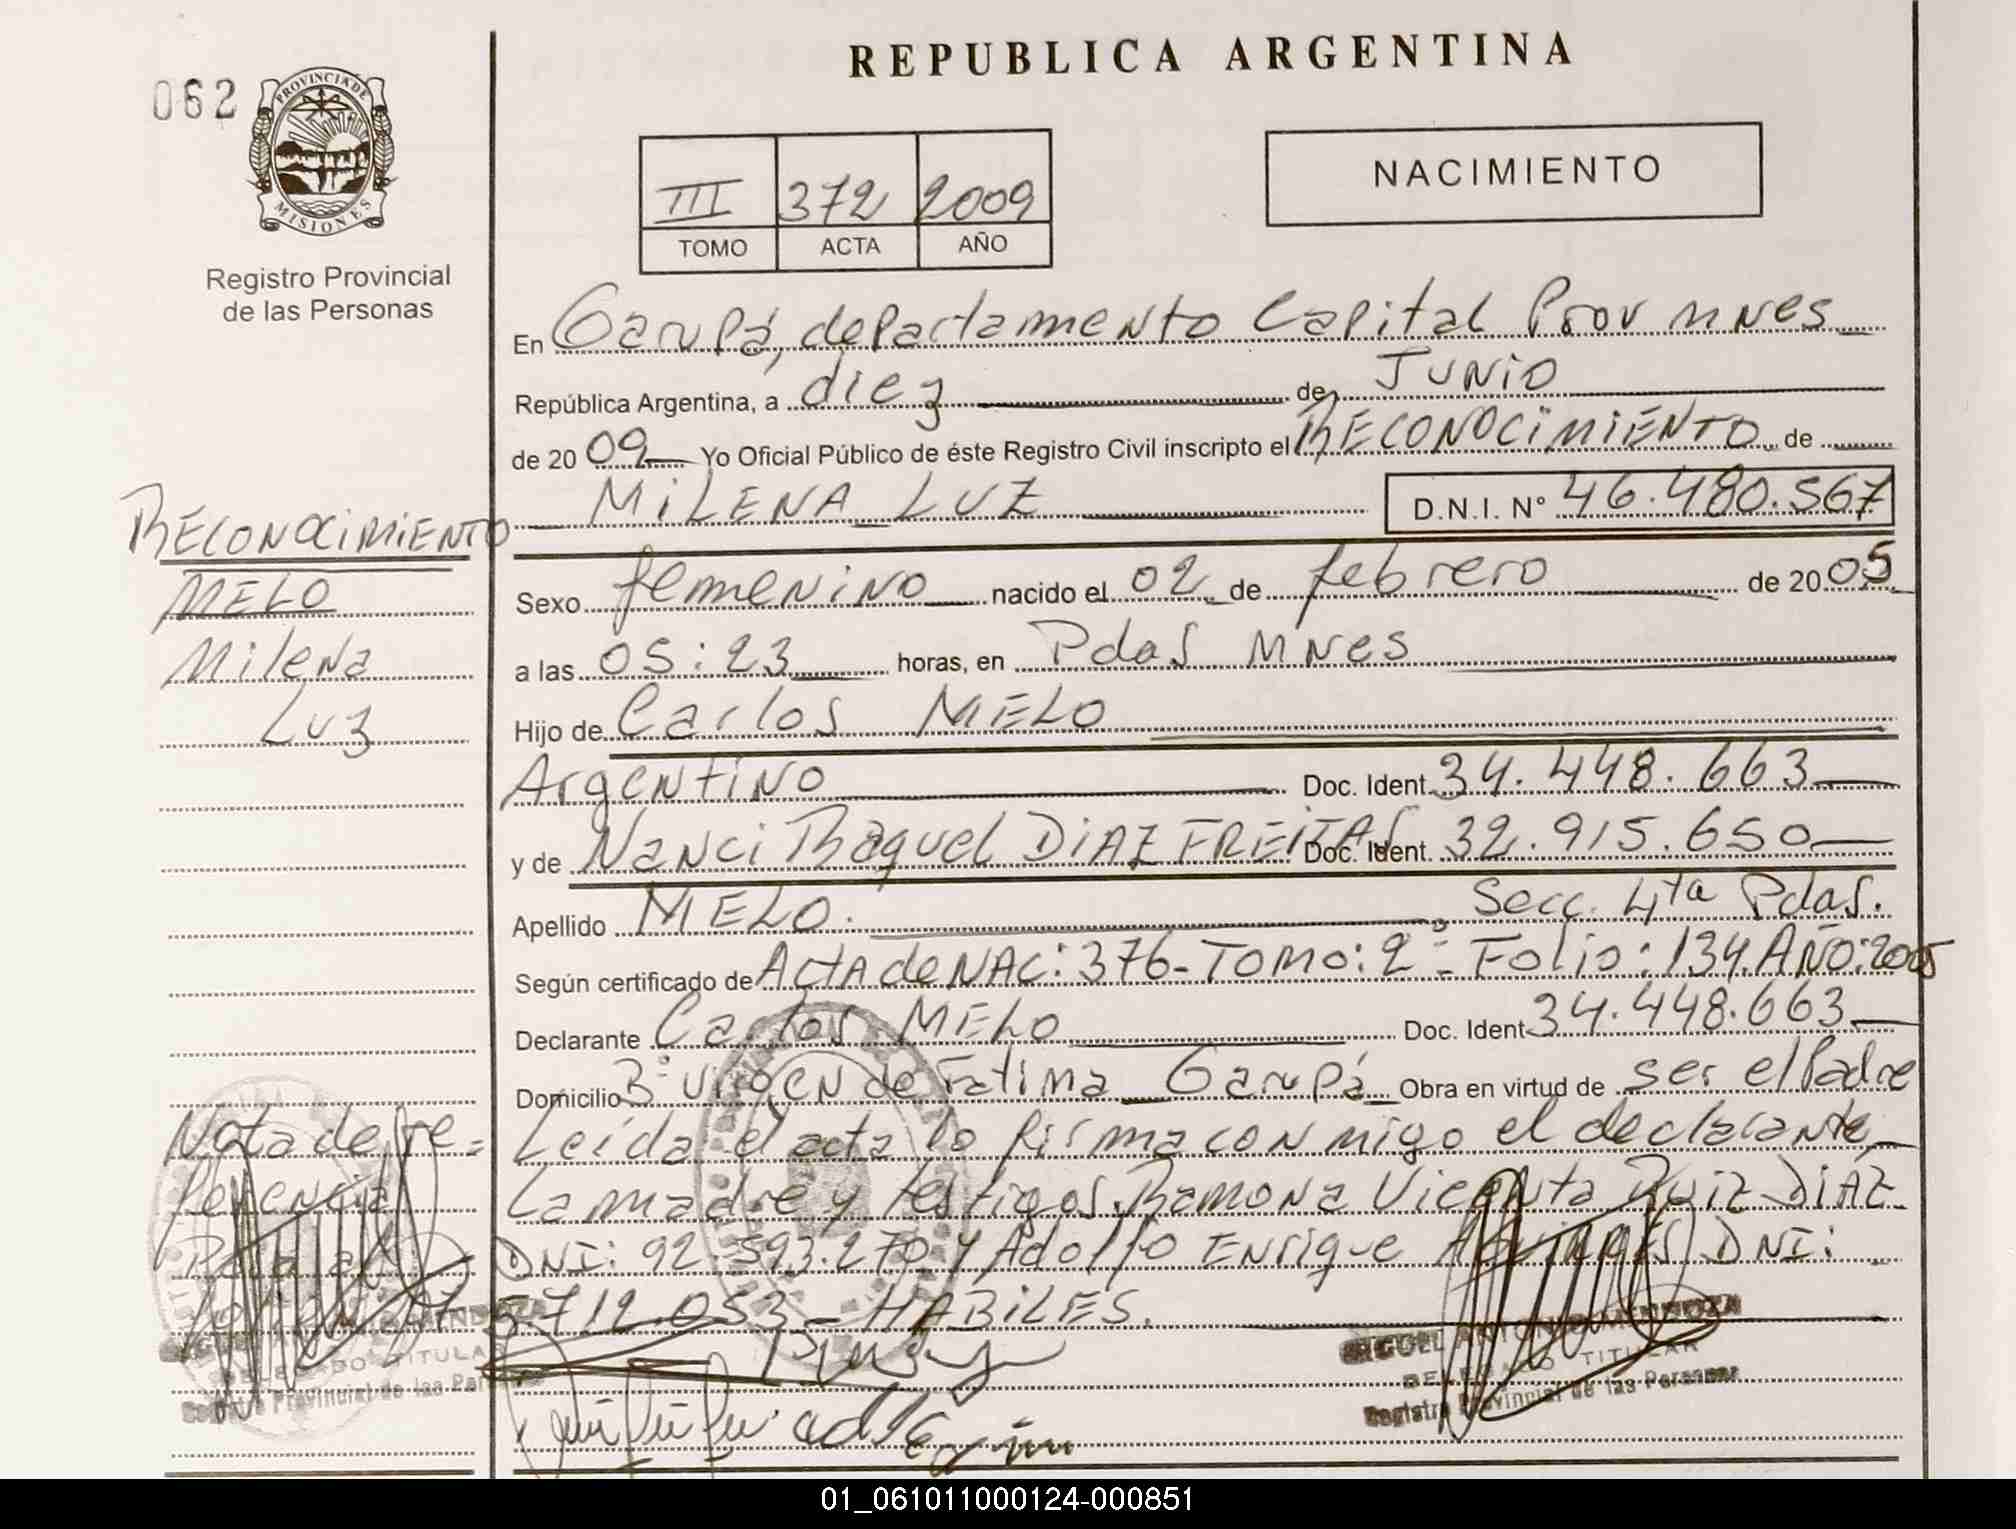 REPUBLICA ARGENTINA
062
PROVINCIA DE
MISIONES
Registro Provincial
de las Personas
III 372 2009
TOMO ACTA AÑO
NACIMIENTO
En Garupá, departamento Capital Prov Mnes
República Argentina, a diez de Junio
de 2009 Yo Oficial Público de éste Registro Civil inscripto el RECONOCIMIENTO de
MILENA LUZ D.N.I. Nº 46.480.567
RECONOCIMIENTO
MELO
Milena
Luz
Sexo femenino nacido el 02 de febrero de 2005
a las 05:23 horas, en Pdas Mnes
Hijo de Carlos MELO
Argentino Doc. Ident. 34.448.663
y de Nanci Raquel DIAZ FREITAS Doc. Ident. 32.915.650
Apellido MELO. Secc. 4ta Pdas.
Según certificado de Acta de NAC: 376 - TOMO: 2º - Folio: 134. AÑO: 2005
Declarante Carlos MELO Doc. Ident 34.448.663
Domicilio Bº Virgen de Fatima - Garupá Obra en virtud de ser el Padre
Nota de re=
ferencia
Leída el acta lo firma conmigo el declarante
La madre y testigos. Ramona Vicenta Ruiz DIAZ
DNI: 92.593.270 y Adolfo Enrique DNI:
5712.053 - HABILES.
MIGUEL ANTONIO MENDOZA
DELEGADO TITULAR
Registro Provincial de las Personas
DELEGADO TITULAR
Registro Provincial de las Personas
01_061011000124-000851